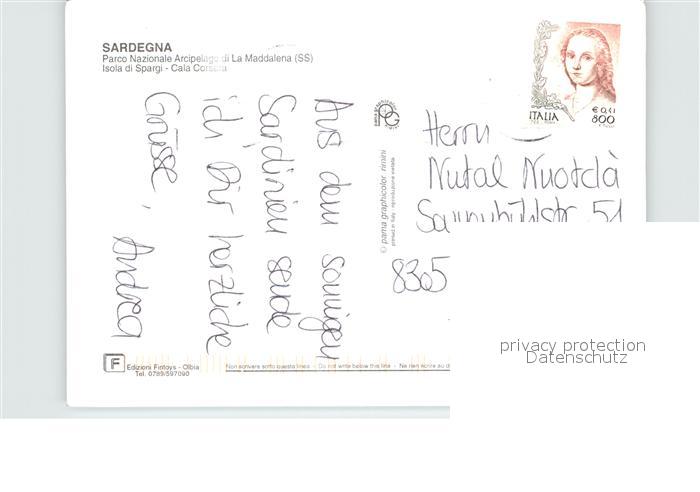 SARDEGNA
Parco Nazionale Arcipelago di La Maddalena (SS)
Isola di Spargi - Cala Corsara
Aus dem sonnigen
Sardinien sende
ich Dir herzliche
Grüsse, Andrea
pama graphicolor
PG
rimini
© pama graphicolor rimini
printed in italy - riproduzione vietata
ITALIA
€ 0,41
800
Herrn
Nutal Nuotclà
51
8305
privacy protection
Datenschutz
F
Edizioni Fintoys - Olbia
Tel. 0789/597090
Non scrivere sotto questa linea - Do not write below this line - Ne rien écrire au d